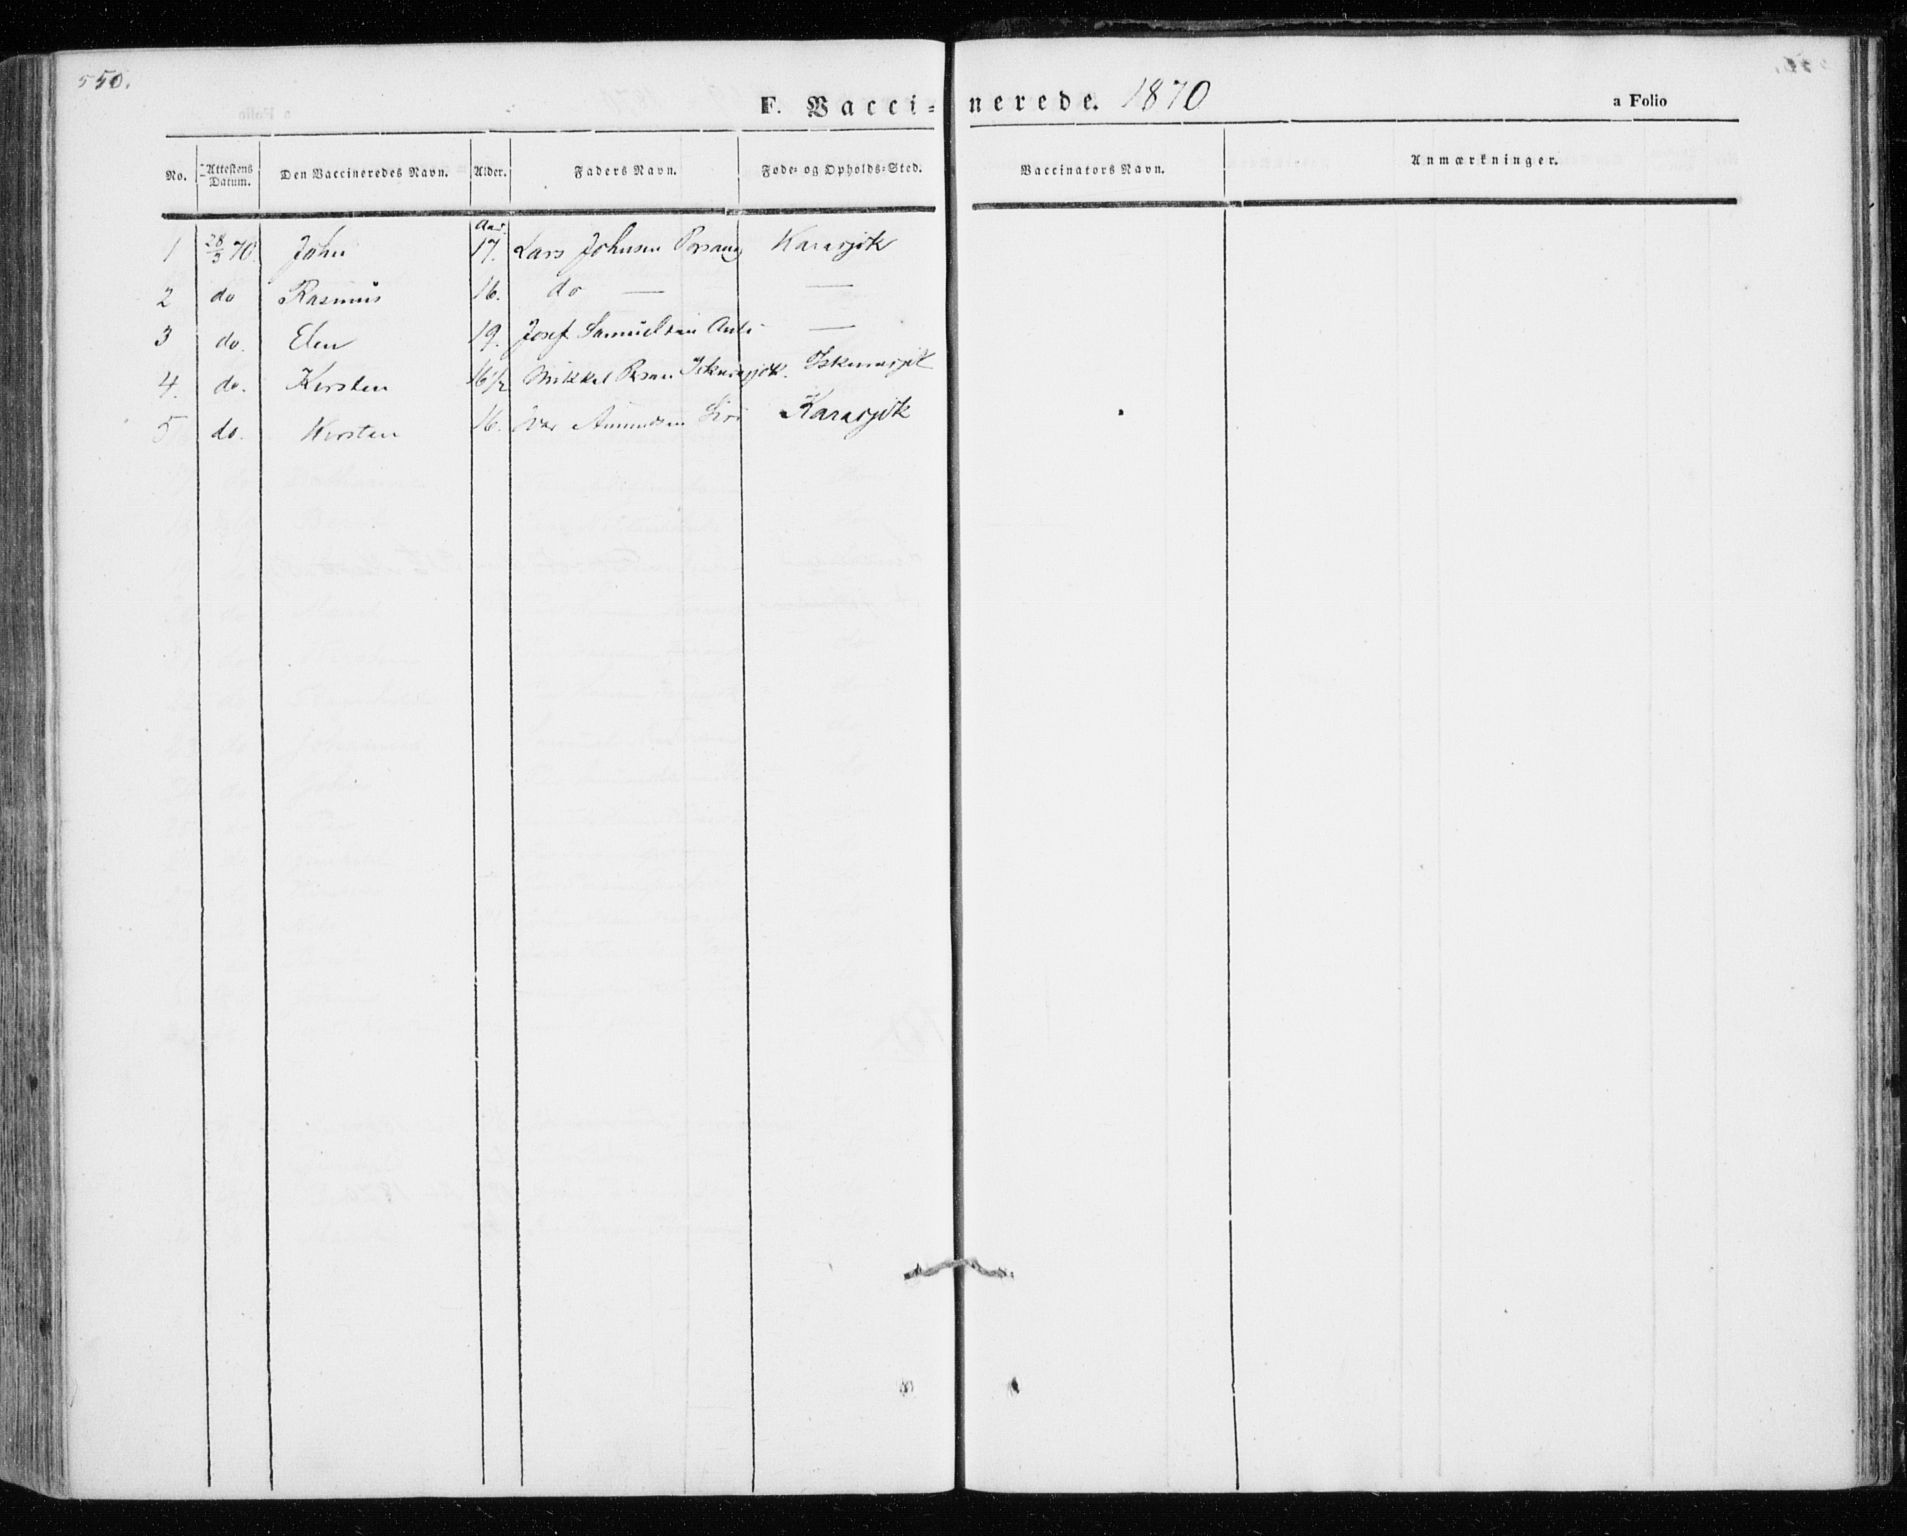 550.
F. Vaccinerede. 1870 a Folio
No. Attestens Datum. Den Vaccineredes Navn. Alder. Faders Navn. Føde- og Opholds-Sted. Vaccinators Navn. Anmærkninger.
Aar
1 28/3 70. John 17. Lars Johnsen Porsang Karasjok
2 do Rasmus 16. do — —
3 do. Elen 19. Josef Samuelsen Anti —
4. do. Kirsten 16 1/2 Mikkel Persen Iskurasjok. Iskurasjok
5 do. Kirsten 16. Amundsen Karasjok